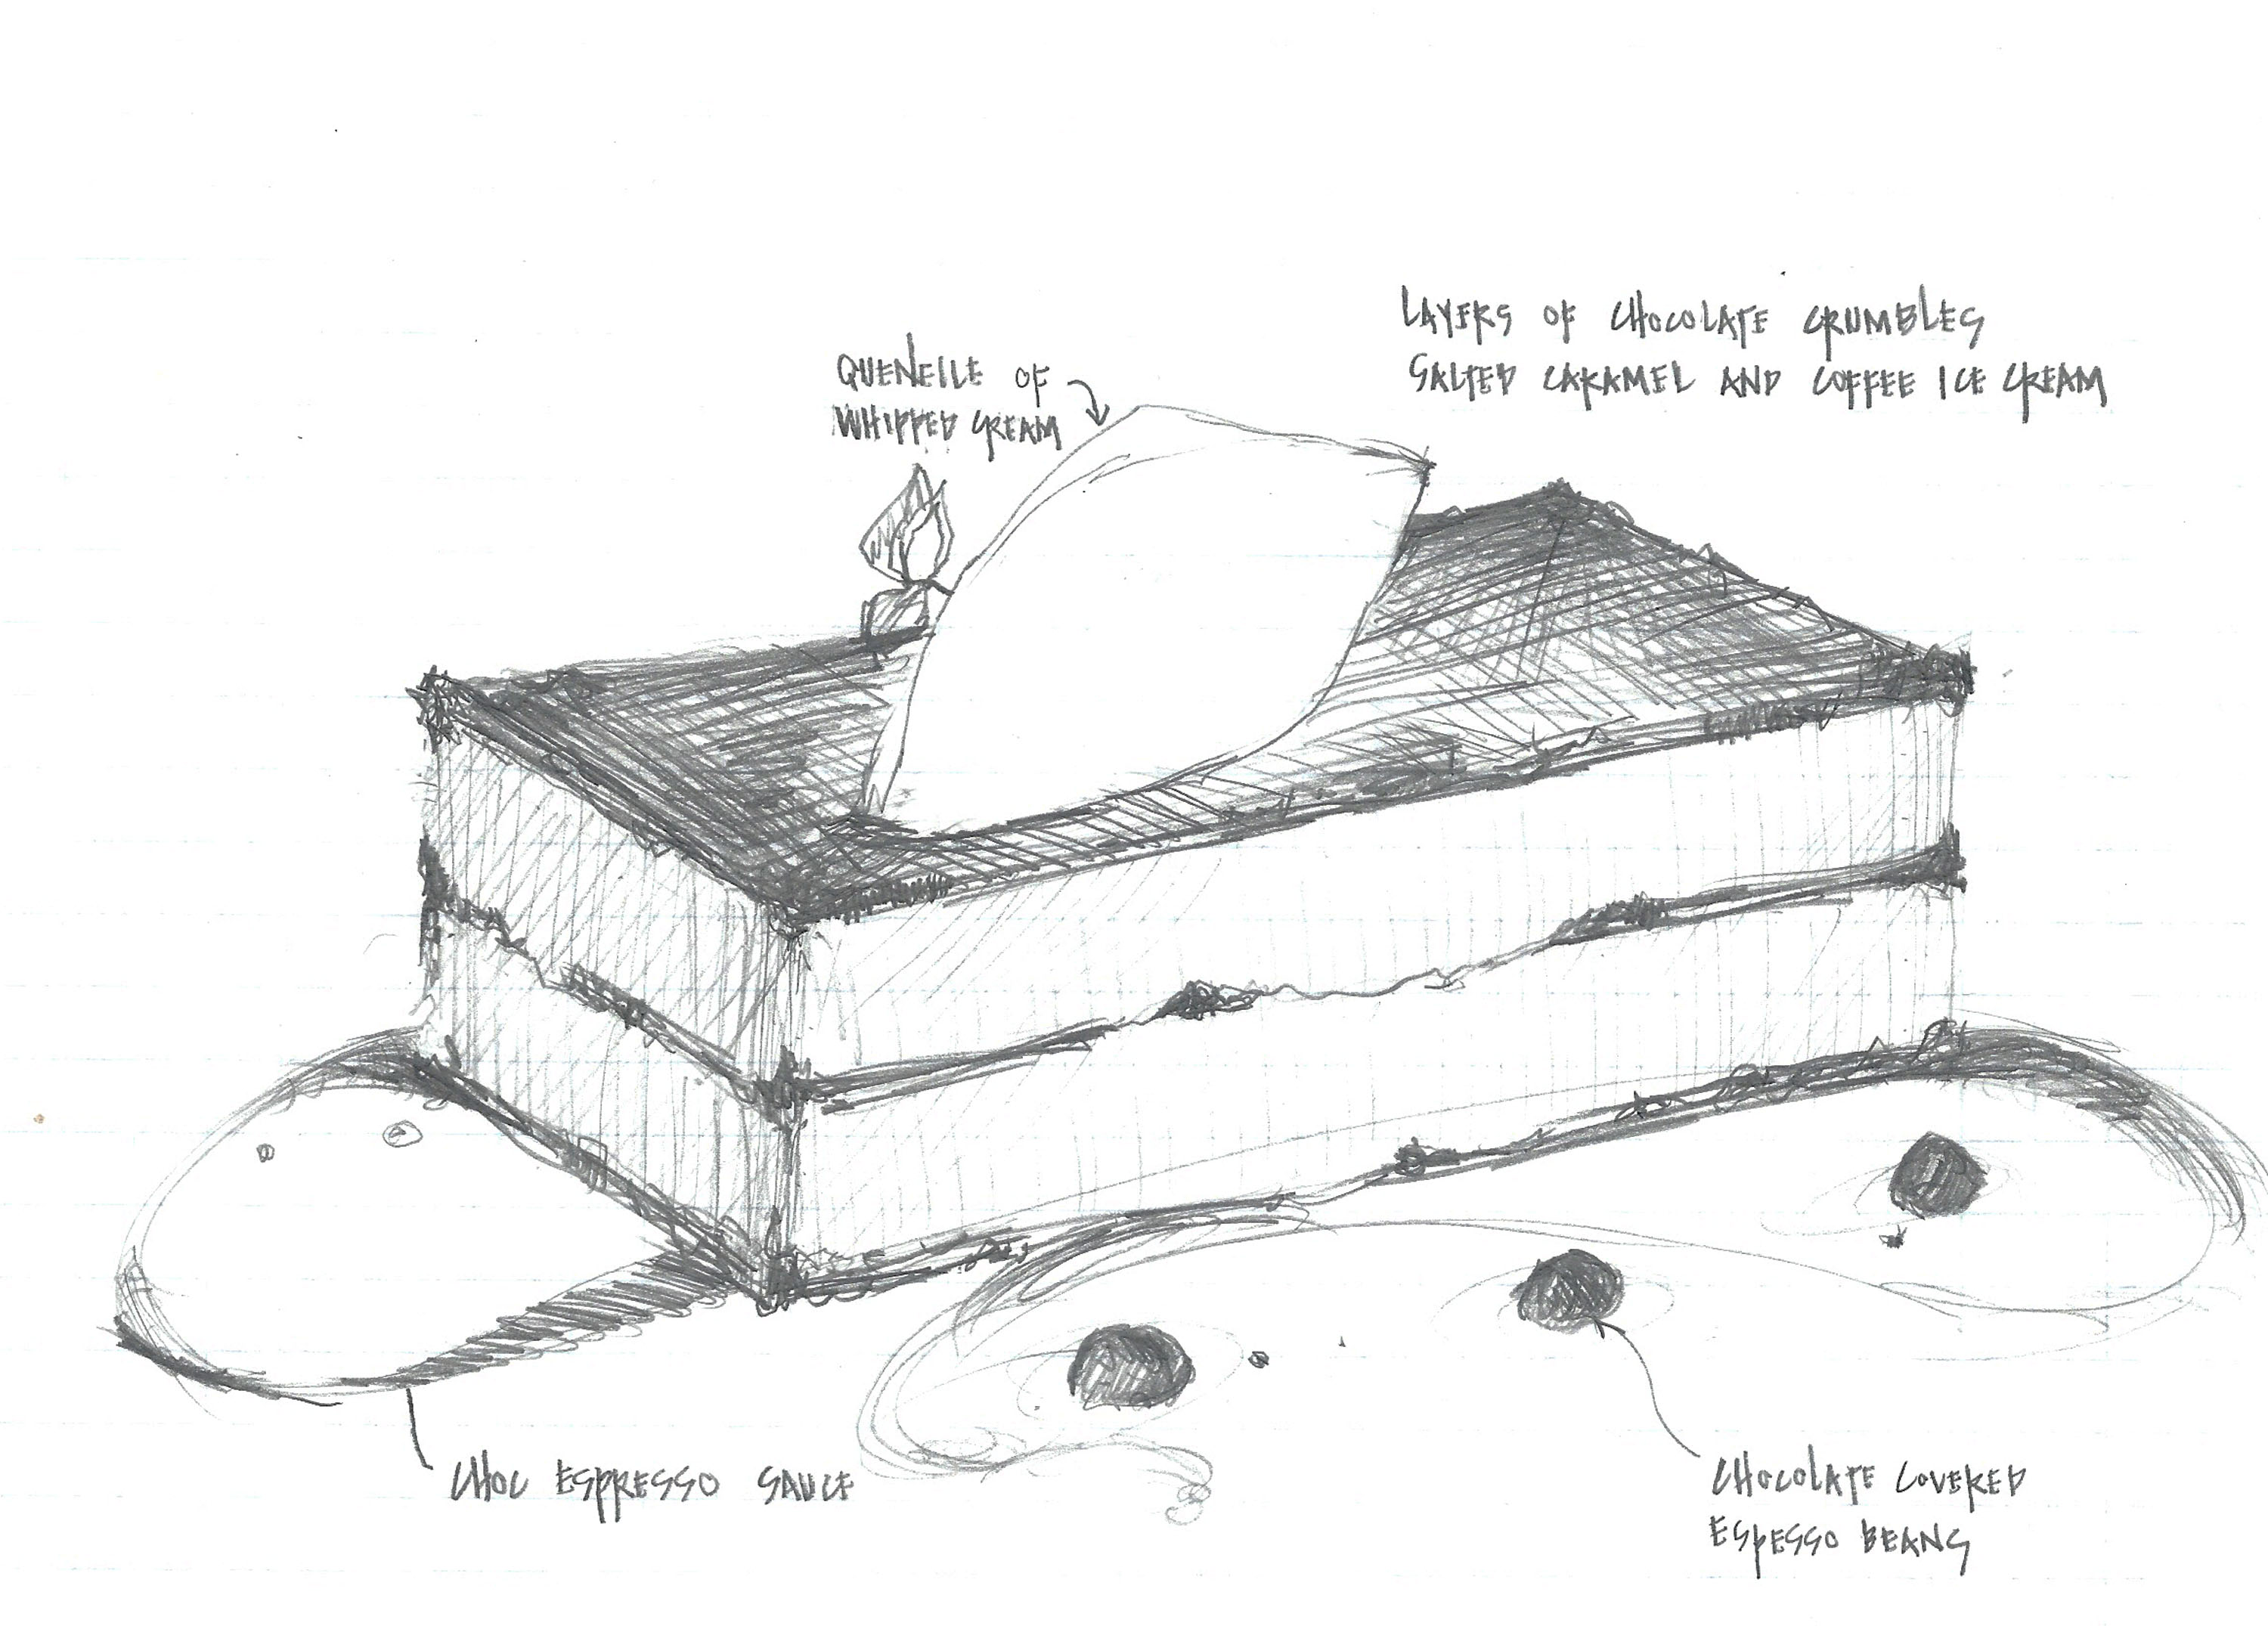 LAYERS OF CHOCOLATE CRUMBLES
SALTED CARAMEL AND COFFEE ICE CREAM
QUENELLE OF
WHIPPED CREAM
CHOC ESPRESSO SAUCE
CHOCOLATE COVERED
ESPESSO BEANS